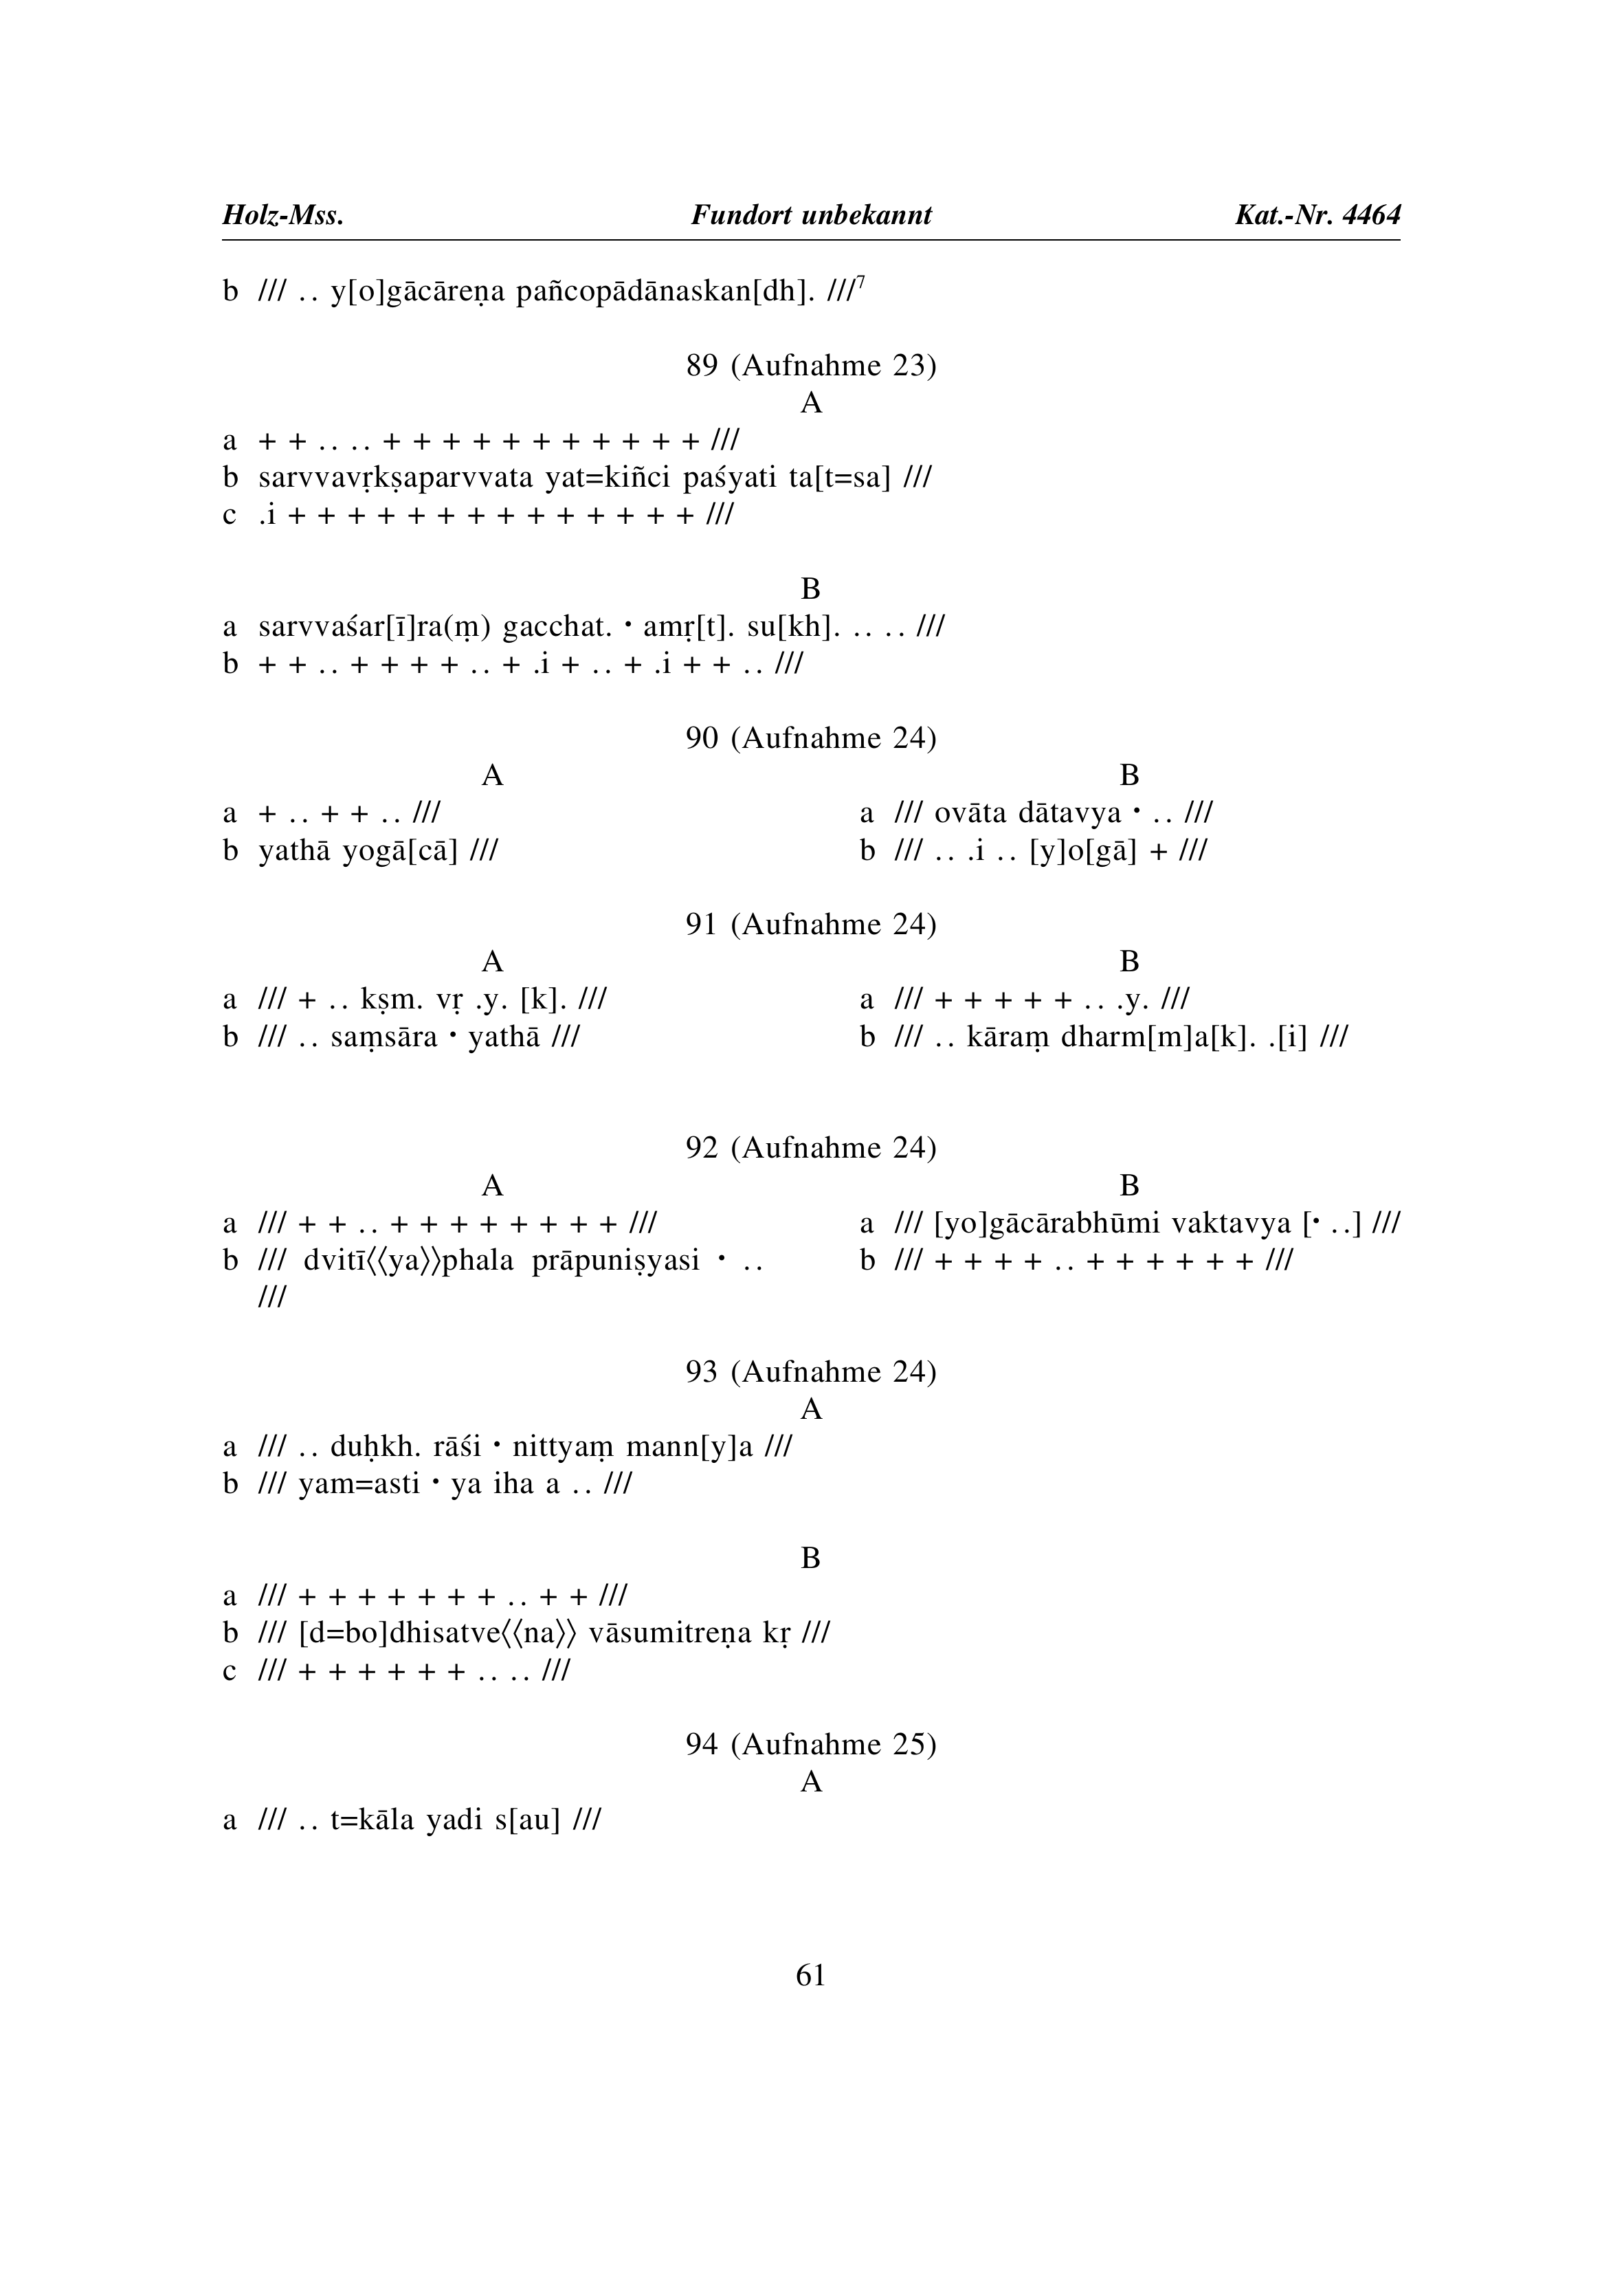 Holz-Mss. Fundort unbekannt Kat.-Nr. 4464
b /// .. y[o]gācāreṇa pañcopādānaskan[dh]. ///7
89 (Aufnahme 23)
A
a + + .. .. + + + + + + + + + + + ///
b sarvvavṛkṣaparvvata yat=kiñci paśyati ta[t=sa] ///
c .i + + + + + + + + + + + + + + ///
B
a sarvvaśar[ī]ra(ṃ) gacchat. • amṛ[t]. su[kh]. .. .. ///
b + + .. + + + + .. + .i + .. + .i + + .. ///
90 (Aufnahme 24)
A
a + .. + + .. ///
b yathā yogā[cā] ///
B
a /// ovāta dātavya • .. ///
b /// .. .i .. [y]o[gā] + ///
91 (Aufnahme 24)
A
a /// + .. kṣm. vṛ .y. [k]. ///
b /// .. saṃsāra • yathā ///
B
a /// + + + + + .. .y. ///
b /// .. kāraṃ dharm[m]a[k]. .[i] ///
92 (Aufnahme 24)
A
a /// + + .. + + + + + + + + ///
b /// dvitī⟨⟨ya⟩⟩phala prāpuniṣyasi • ..
///
B
a /// [yo]gācārabhūmi vaktavya [• ..] ///
b /// + + + + .. + + + + + + ///
93 (Aufnahme 24)
A
a /// .. duḥkh. rāśi • nittyaṃ mann[y]a ///
b /// yam=asti • ya iha a .. ///
B
a /// + + + + + + + .. + + ///
b /// [d=bo]dhisatve⟨⟨na⟩⟩ vāsumitreṇa kṛ ///
c /// + + + + + + .. .. ///
94 (Aufnahme 25)
A
a /// .. t=kāla yadi s[au] ///
61